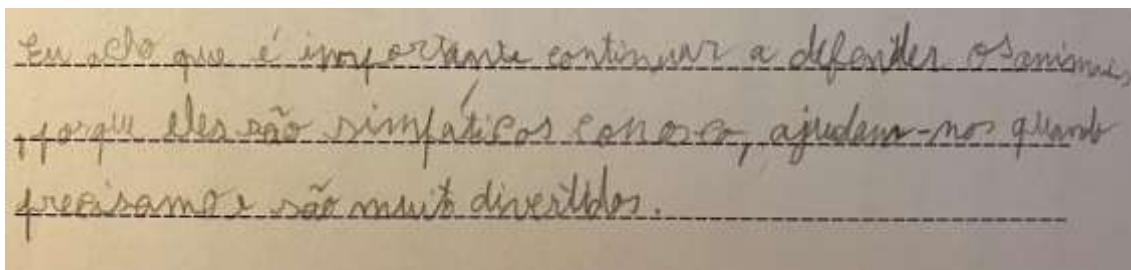 Eu acho que é importante continuar a defender os animais
, porque eles são simpáticos conosco, ajudam-nos quando
precisamo e são muito divertidos.